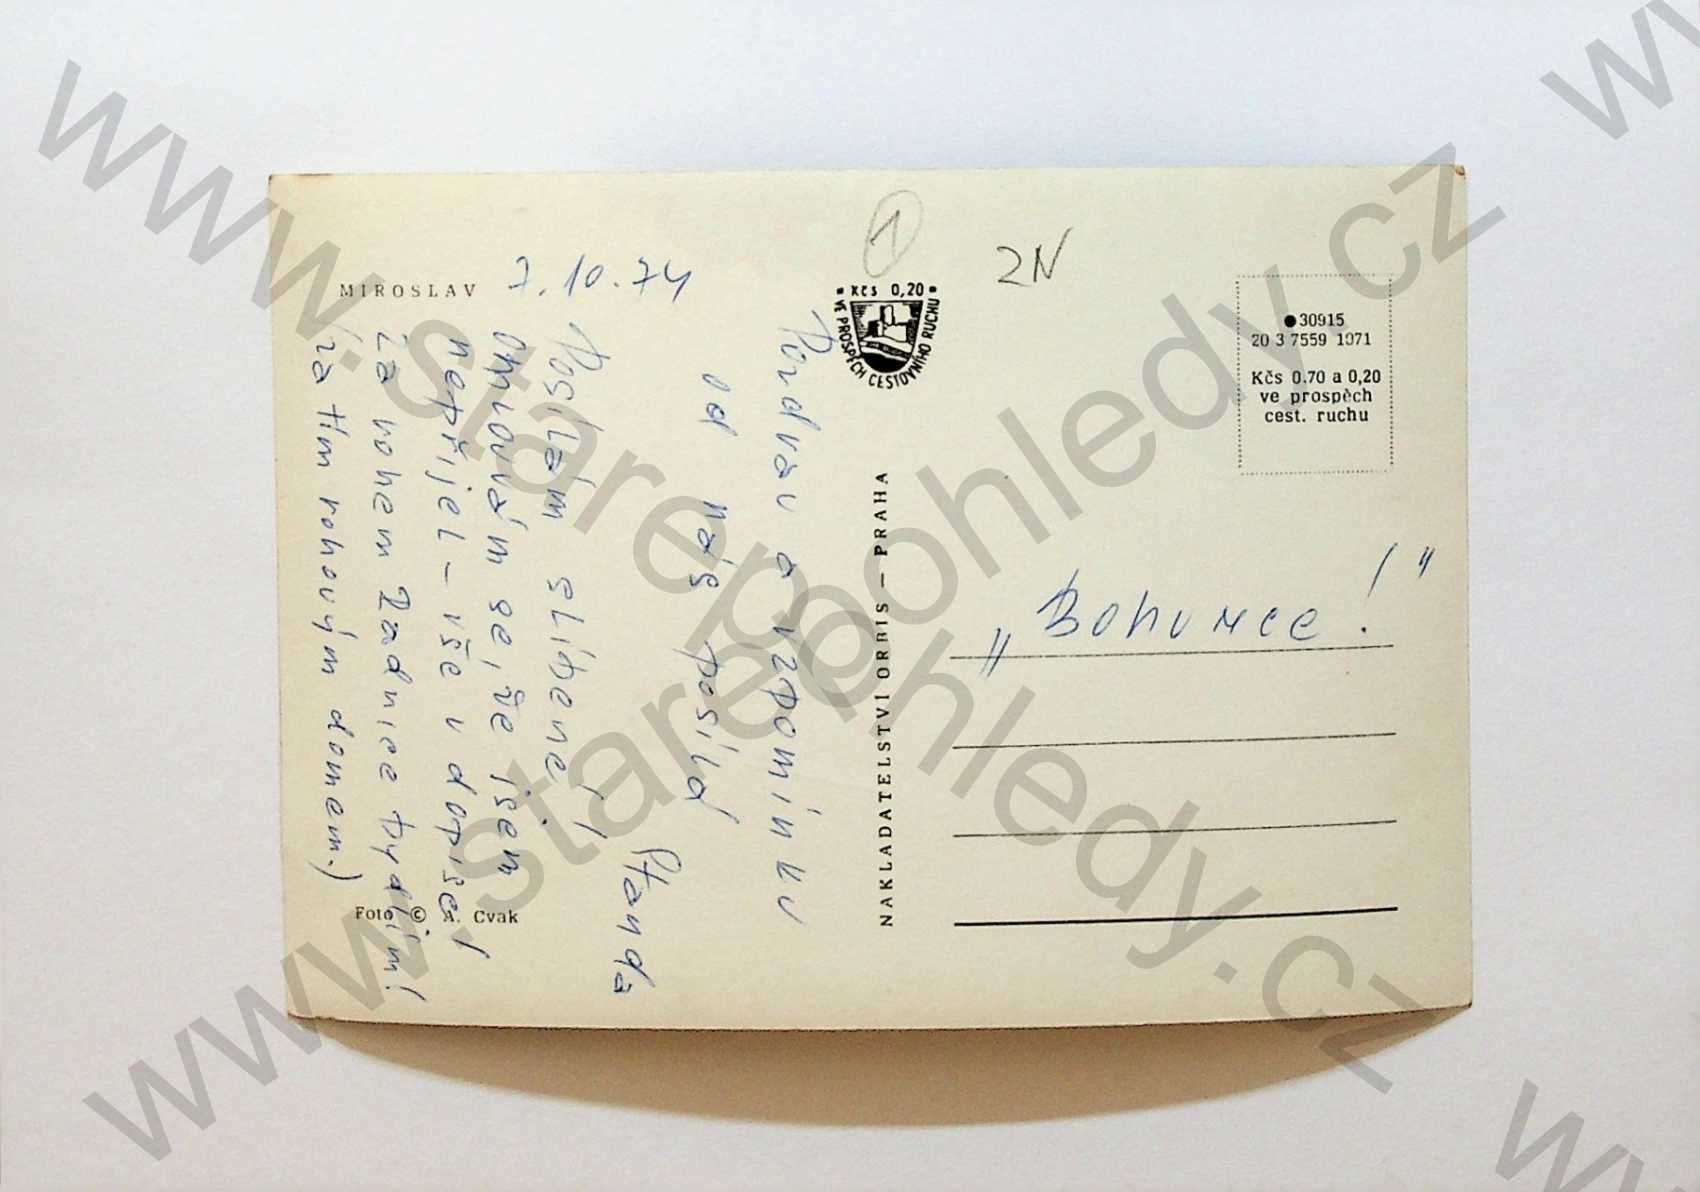 MIROSLAV
7.10.74
Pozdrav a vzpomínku
od nás posílá
Standa
Posílám slíbené
omlouvám se, že jsem
nepřijel - vše v dopise!
Za rohem Radnice bydlím!
(za tím rohovým domem.)
Foto © A. Cvak
1
Kčs 0,20
VE PROSPĚCH CESTOVNÍHO RUCHU
NAKLADATELSTVÍ ORBIS — PRAHA
2N
30915
20 3 7559 1971
Kčs 0.70 a 0,20
ve prospěch
cest. ruchu
„Bohunce!"
www.starepohledy.cz
www.starepohledy.cz